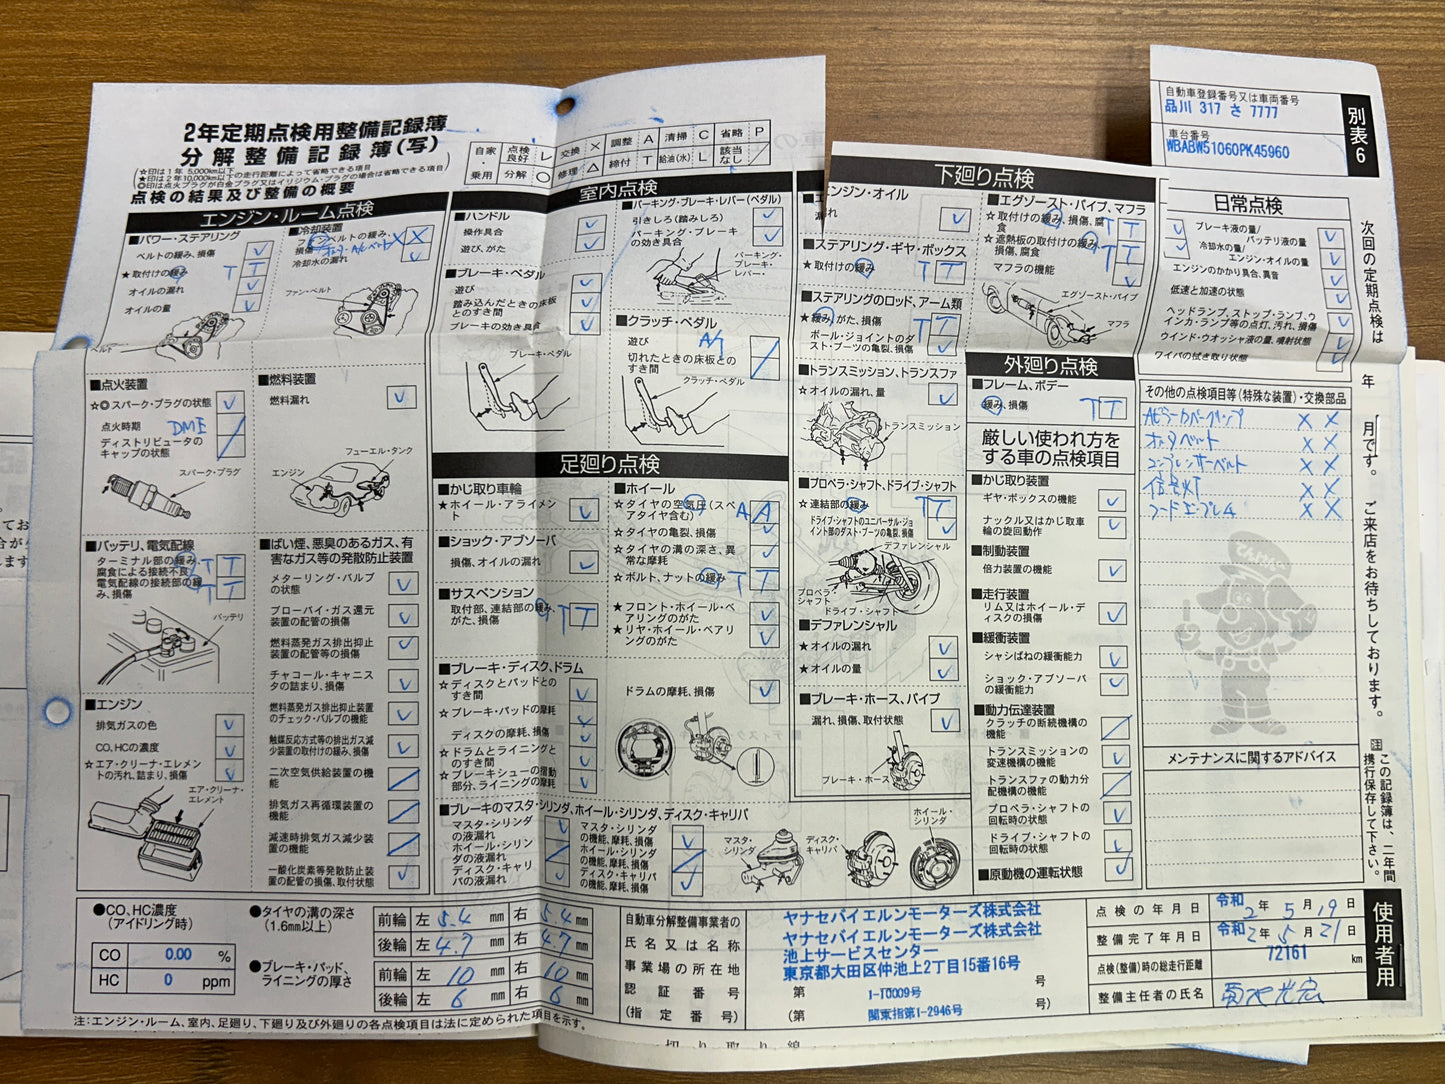 2年定期点検用整備記録簿
分解整備記録簿(写)
☆印は1年 5,000km以下
★印は2年10,000km以下の走行距離によって省略できる項目
◎印は点火プラグが白金プラグ又はイリジウム・プラグの場合は省略できる項目
点検の結果及び整備の概要
自家・乗用
点検良好 レ 交換 × 調整 A 清掃 C 省略 P
分解 ○ 修理 △ 締付 T 給油(水) L 該当なし ／
自動車登録番号又は車両番号
品川 317 さ 7777
車台番号
WBABW51060PK45960
別表6
エンジン・ルーム点検
■パワー・ステアリング
ベルトの緩み、損傷
★取付けの緩み T T
オイルの漏れ
オイルの量
■冷却装置
ファンベルトの緩み、損傷 × ×
冷却水の漏れ
ファン・ベルト
ベルト
■点火装置
☆◎スパーク・プラグの状態
点火時期 DME
ディストリビュータのキャップの状態
スパーク・プラグ
■燃料装置
燃料漏れ
フューエル・タンク
エンジン
■バッテリ、電気配線
ターミナル部の緩み、腐食による接続不良 T T
電気配線の接続部の緩み、損傷 T T
バッテリ
■エンジン
排気ガスの色
CO、HCの濃度
☆エア・クリーナ・エレメントの汚れ、詰まり、損傷
エア・クリーナ・エレメント
■ばい煙、悪臭のあるガス、有害なガス等の発散防止装置
メターリング・バルブの状態
ブローバイ・ガス還元装置の配管の損傷
燃料蒸発ガス排出抑止装置の配管等の損傷
チャコール・キャニスタの詰まり、損傷
燃料蒸発ガス排出抑止装置のチェック・バルブの機能
触媒反応方式等の排出ガス減少装置の取付けの緩み、損傷
二次空気供給装置の機能
排気ガス再循環装置の機能
減速時排気ガス減少装置の機能
一酸化炭素等発散防止装置の配管の損傷、取付状態
室内点検
■ハンドル
操作具合
遊び、がた
■ブレーキ・ペダル
遊び
踏み込んだときの床板とのすき間
ブレーキの効き具合
ブレーキ・ペダル
■パーキング・ブレーキ・レバー(ペダル)
引きしろ(踏みしろ)
パーキング・ブレーキの効き具合
パーキング・ブレーキ・レバー
■クラッチ・ペダル
遊び A/T
切れたときの床板とのすき間
クラッチ・ペダル
足廻り点検
■かじ取り車輪
★ホイール・アライメント
■ショック・アブソーバ
損傷、オイルの漏れ
■サスペンション
取付部、連結部の緩み、がた、損傷 T T
■ホイール
☆タイヤの空気圧(スペアタイヤ含む) A A
☆タイヤの亀裂、損傷
☆タイヤの溝の深さ、異常な摩耗
☆ボルト、ナットの緩み T T
★フロント・ホイール・ベアリングのがた
★リヤ・ホイール・ベアリングのがた
■ブレーキ・ディスク、ドラム
☆ディスクとパッドとのすき間
☆ブレーキ・パッドの摩耗
ディスクの摩耗、損傷
☆ドラムとライニングとのすき間
☆ブレーキシューの摺動部分、ライニングの摩耗
ドラムの摩耗、損傷
■ブレーキのマスタ・シリンダ、ホイール・シリンダ、ディスク・キャリパ
マスタ・シリンダの液漏れ
ホイール・シリンダの液漏れ
ディスク・キャリパの液漏れ
マスタ・シリンダの機能、摩耗、損傷
ホイール・シリンダの機能、摩耗、損傷
ディスク・キャリパの機能、摩耗、損傷
マスタ・シリンダ
ディスク・キャリパ
ホイール・シリンダ
下廻り点検
エンジン・オイル
漏れ
■ステアリング・ギヤ・ボックス
★取付けの緩み T T
■ステアリングのロッド、アーム類
★緩み、がた、損傷 T T
ボール・ジョイントのダスト・ブーツの亀裂、損傷
■トランスミッション、トランスファ
☆オイルの漏れ、量
トランスミッション
■プロペラ・シャフト、ドライブ・シャフト
★連結部の緩み T T
ドライブ・シャフトのユニバーサル・ジョイント部のダスト・ブーツの亀裂、損傷
デファレンシャル
プロペラ・シャフト
ドライブ・シャフト
■デファレンシャル
★オイルの漏れ
★オイルの量
■ブレーキ・ホース、パイプ
漏れ、損傷、取付状態
ブレーキ・ホース
■エグゾースト・パイプ、マフラ
☆取付けの緩み、損傷、腐食 T T
☆遮熱板の取付けの緩み、損傷、腐食 T T
マフラの機能
エグゾースト・パイプ
マフラ
外廻り点検
■フレーム、ボデー
緩み、損傷 T T
厳しい使われ方をする車の点検項目
■かじ取り装置
ギヤ・ボックスの機能
ナックル又はかじ取車輪の旋回動作
■制動装置
倍力装置の機能
■走行装置
リム又はホイール・ディスクの損傷
■緩衝装置
シャシばねの緩衝能力
ショック・アブソーバの緩衝能力
■動力伝達装置
クラッチの断続機構の機能
トランスミッションの変速機構の機能
トランスファの動力分配機構の機能
プロペラ・シャフトの回転時の状態
ドライブ・シャフトの回転時の状態
■原動機の運転状態
日常点検
ブレーキ液の量
バッテリ液の量
冷却水の量
エンジン・オイルの量
エンジンのかかり具合、異音
低速と加速の状態
ヘッドランプ、ストップ・ランプ、ウインカ・ランプ等の点灯、汚れ、損傷
ウインド・ウオッシャ液の量、噴射状態
ワイパの拭き取り状態
その他の点検項目等(特殊な装置)・交換部品
オルタベルト × ×
コンプレッサーベルト × ×
フードエンブレム × ×
メンテナンスに関するアドバイス
次回の定期点検は 年 月です。 ご来店をお待ちしております。
注 この記録簿は、二年間携行保存して下さい。
使用者用
●CO、HC濃度(アイドリング時)
CO 0.00 %
HC 0 ppm
●タイヤの溝の深さ(1.6mm以上)
前輪 左 5.4 mm 右 5.4 mm
後輪 左 4.7 mm 右 4.7 mm
●ブレーキ・パッド、ライニングの厚さ
前輪 左 10 mm 右 10 mm
後輪 左 6 mm 右 6 mm
自動車分解整備事業者の
氏名又は名称
事業場の所在地
認証番号
(指定番号)
ヤナセバイエルンモーターズ株式会社
ヤナセバイエルンモーターズ株式会社
池上サービスセンター
東京都大田区仲池上2丁目15番16号
第 1-10009号 号
(第 関東指第1-2946号 号)
点検の年月日 令和2年5月19日
整備完了年月日 令和2年5月21日
点検(整備)時の総走行距離 72161 km
整備主任者の氏名
注:エンジン・ルーム、室内、足廻り、下廻り及び外廻りの各点検項目は法に定められた項目を示す。
切り取り線